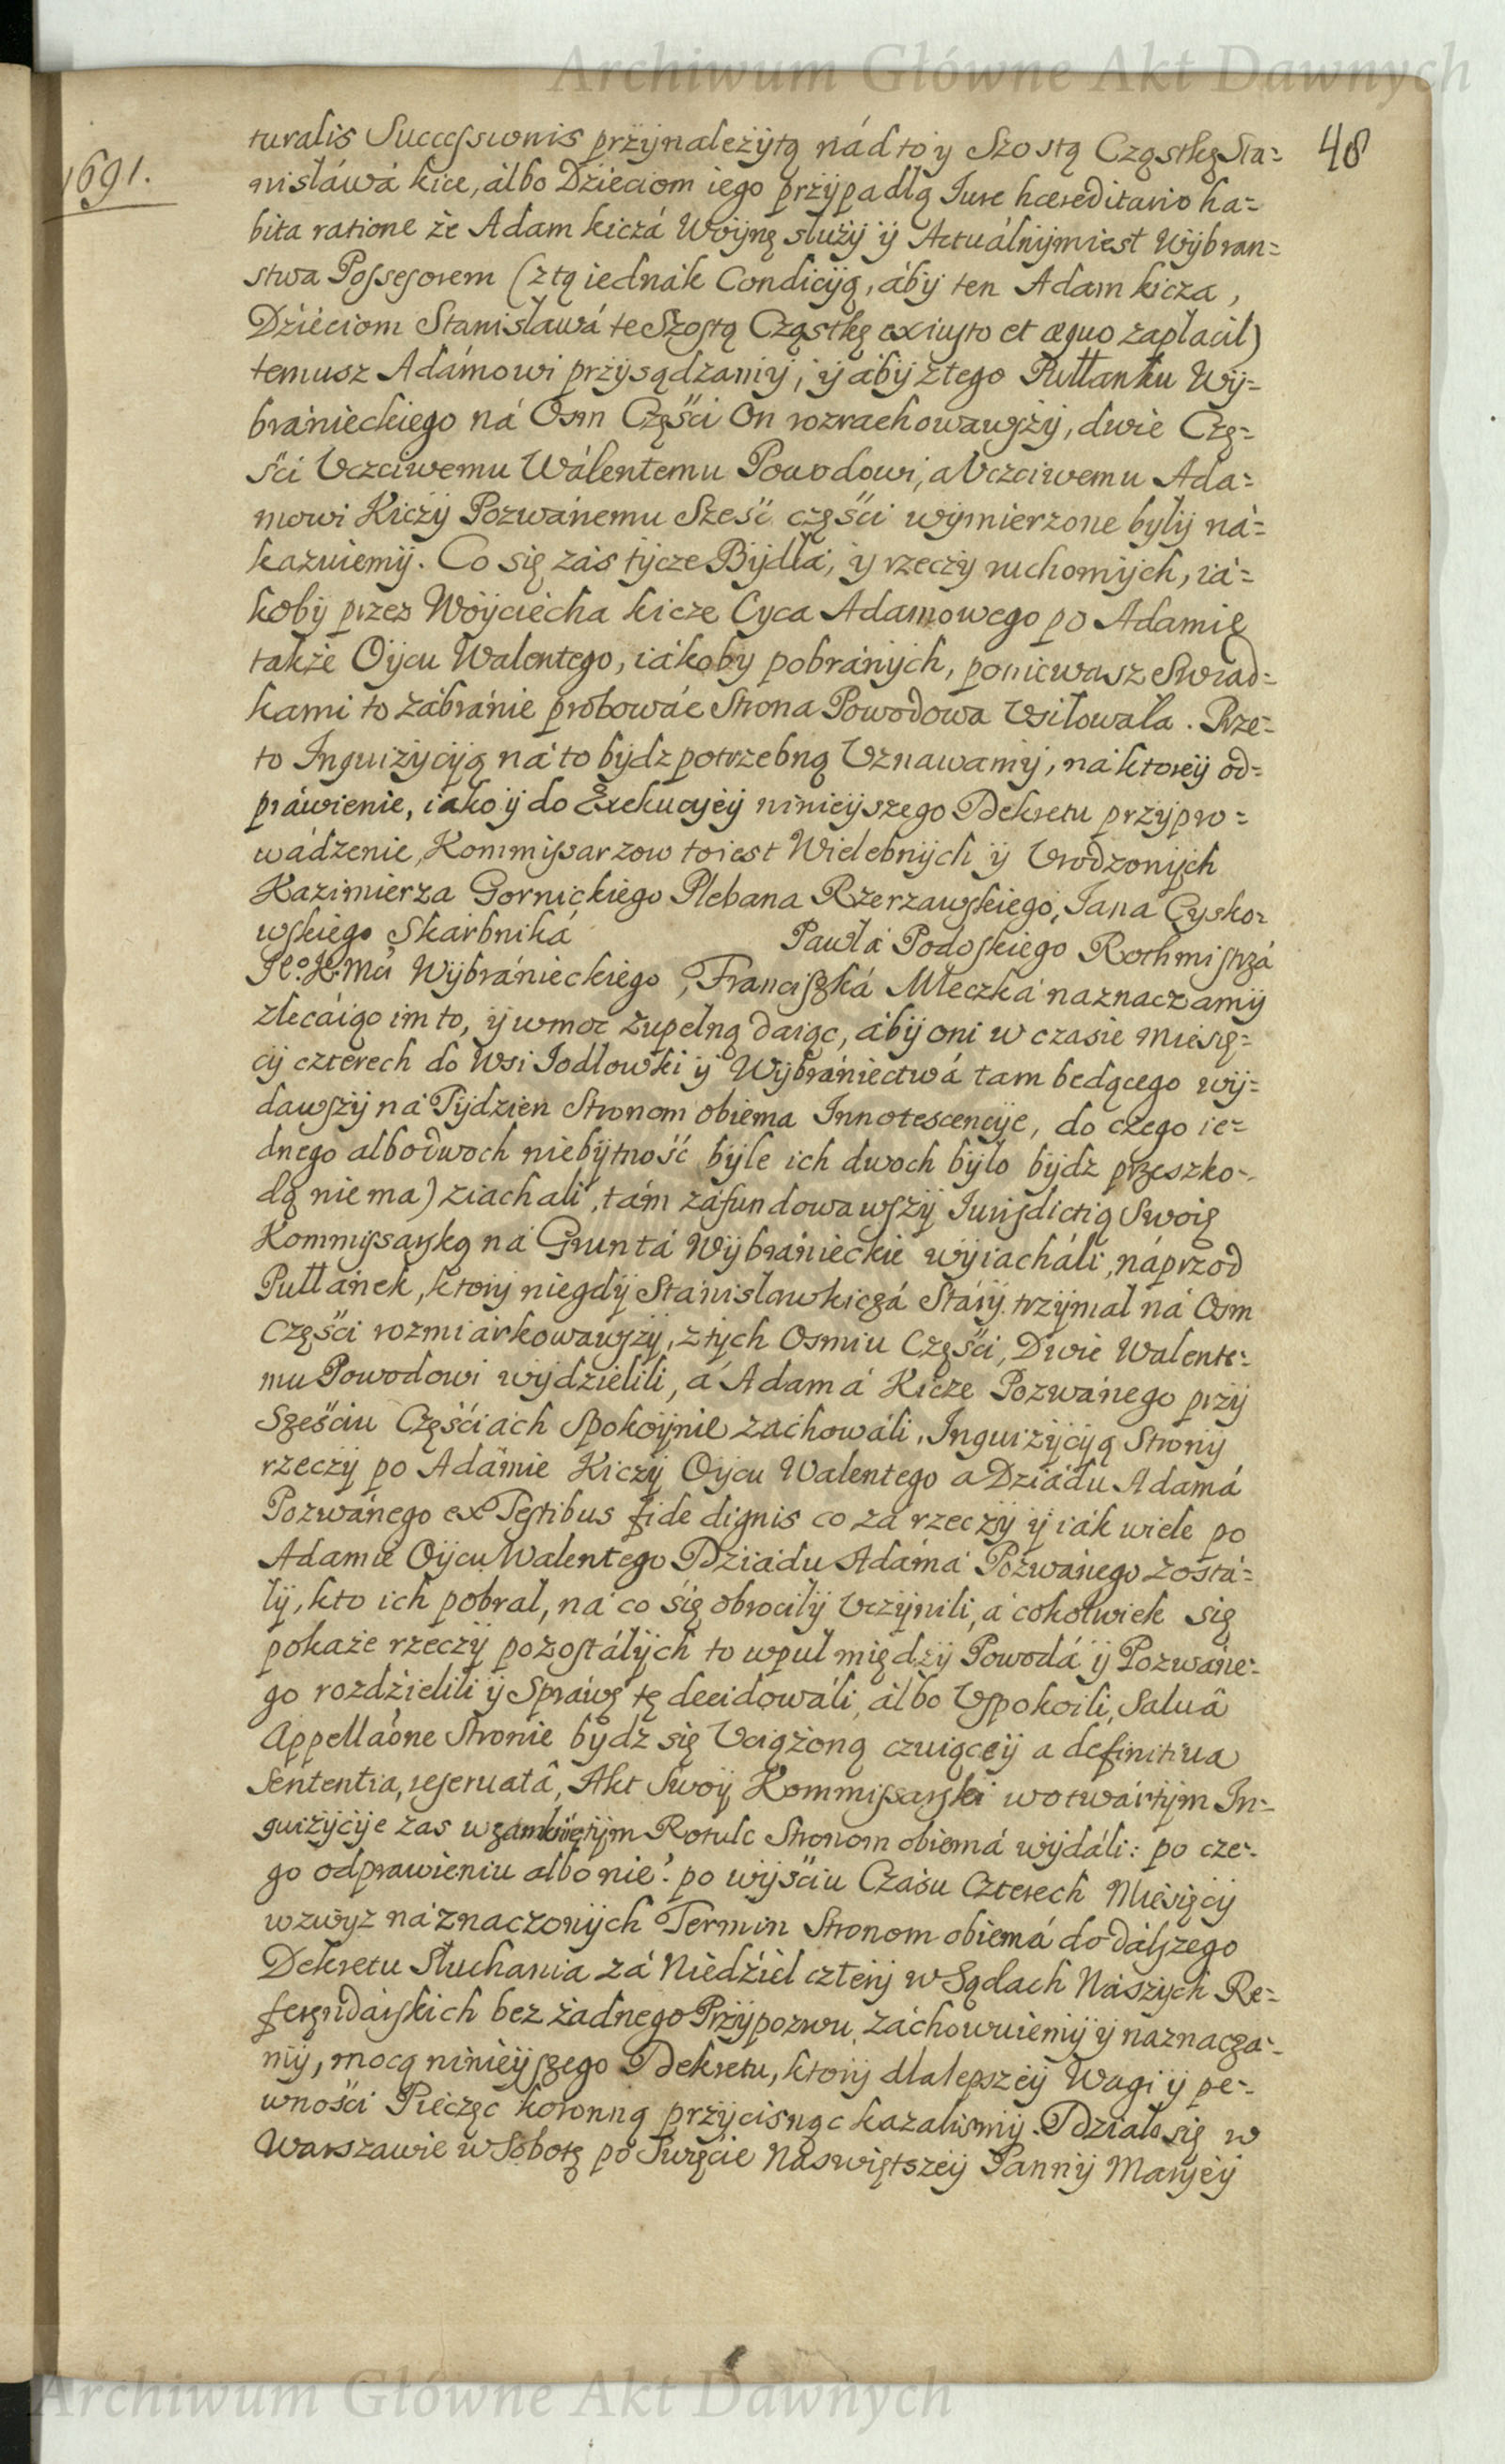 Archiwum Główne Akt Dawnych
48
1691.
turalis Successionis przÿnależÿtą nád to ÿ Szostą Cząstkę Sta=
nisławá kice, álbo Dzieciom iego przÿpadłą Iure hæreditario ha=
bita ratione że Adam kiczá Woÿnę służÿ ÿ Actuálnÿm iest Wÿbran=
stwa Possesorem (z tą iednák Condicÿą, ábÿ ten Adam kicza,
Dzieciom Stanisławá te Szostą Cząstkę ex iusto et æquo zapłacił)
temusz Adámowi przÿsądzamÿ, ÿ abÿ z tego Pułłanku Wÿ=
bránieckiego ná Osm Częśći On rozrachowawszÿ, dwie Czę=
śći Vczciwemu Wálentemu Powodowi, a Vczciwemu Ada=
mowi Kiczÿ Pozwánemu Sześć częśći wÿmierzone bÿłÿ ná=
kazuiemÿ. Co się zás tÿcze Bÿdłá, ÿ rzeczÿ ruchomÿch, iá=
kobÿ przez Woÿciecha kicze Oyca Adamowego po Adamie
także Oÿcu Walentego, iákoby pobránÿch, poniewasz Swiad=
kami to zábránie probowáć Strona Powodowa Vsiłowała. Prze=
to Inquizÿcÿą ná to bÿdz potrzebną Vznawamÿ, ná ktoreÿ od=
práwienie, iako ÿ do Exekucÿeÿ ninieÿszego Dekretu przÿpro=
wádzenie, Kommissarzow to iest Wielebnÿch ÿ Vrodzonÿch
Kazimierza Gornickiego Plebana Rzerzawskiego, Jana Cysko=
wskiego Skarbniká Pawłá Podoskiego Rothmistrzá
Je° K. Mci Wÿbránieckiego, Franciszká Mleczká naznaczamÿ
zlecáiąc im to, ÿ w moc zupełną daiąc, ábÿ oni w czasie Miesię=
cÿ czterech do Wsi Jodłowki ÿ Wÿbraniectwá tam bedącego wÿ=
dawszÿ ná Tÿdzien Stronom obiema Innotescencÿe, do czego ie=
dnego albo dwoch niebÿtność bÿle ich dwoch bÿło bÿdz przeszko=
dą nie ma) ziachali, tám záfundowawszÿ Jurisdictią Swoię
Kommissarską ná Gruntá Wÿbránieckie wÿiacháli, náprzod
Pułłanek, ktorÿ niegdÿ Stánisław kiczá Starÿ trzÿmał ná Osm
Częśći rozmiarkowawszÿ, z tÿch Osmiu Częśći, Dwie Walente=
mu Powodowi wÿdzielili, á Adamá Kicze Pozwánego przÿ
Sześciu Częśćiách Spokoÿnie záchowáli, Inquizÿcÿą Stronÿ
rzeczÿ po Adámie Kiczÿ Oÿcu Walentego a Dziádu Adamá
Pozwánego ex Testibus fide dignis co za rzeczÿ ÿ iák wiele po
Adamie Oÿcu Walentego Dziádu Adáma Pozwánego zostá=
łÿ, kto ich pobrał, ná co się obrociłÿ Vczÿnili, á cokolwiek się
pokaże rzeczÿ pozostałÿch to w puł międzÿ Powodá ÿ Pozwáne=
go rozdźielili ÿ Spráwę tę decidowáli, álbo Vspokoili, Saluâ
Appellaõne Stronie bydz się Vciążoną czuiąceÿ a definitiua
Sententia, reseruatâ, Akt Swoÿ Kommissarski w otwártÿm In=
quizÿcÿe zas w zamkniętÿm Rotule Stronom obiemá wÿdáli: po cze=
go odprawieniu albo nie? po wÿśćiu Czásu Czterech Miesięcÿ
wzwÿz náznaczonÿch Termin Stronom obiemá do dálszego
Dekretu Słuchania zá Niedźiel czterÿ w Sądach Nászÿch Re=
ferendárskich bez żadnego Przÿpozwu, záchowuiemÿ ÿ naznacza=
mÿ, mocą ninieÿszego Dekretu, ktorÿ dla lepszeÿ Wagi ÿ pe=
wnośći Pieczęc koronną przÿcisnąc kazalismÿ. Działo się w
Warszawie w Sobotę po Swięcie Naswiętszeÿ Pannÿ Marÿeÿ
Archiwum Główne Akt Dawnych